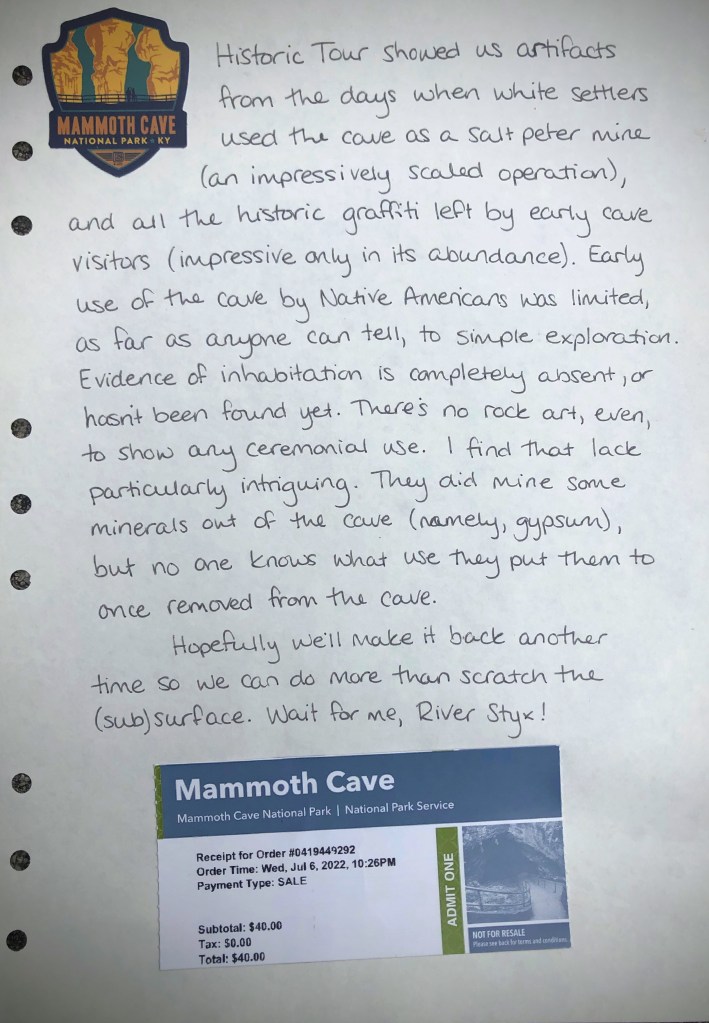 MAMMOTH CAVE
NATIONAL PARK • KY
Historic Tour showed us artifacts
from the days when white settlers
used the cave as a salt peter mine
(an impressively scaled operation),
and all the historic graffiti left by early cave
visitors (impressive only in its abundance). Early
use of the cave by Native Americans was limited,
as far as anyone can tell, to simple exploration.
Evidence of inhabitation is completely absent, or
hasn't been found yet. There's no rock art, even,
to show any ceremonial use. I find that lack
particularly intriguing. They did mine some
minerals out of the cave (namely, gypsum),
but no one knows what use they put them to
once removed from the cave.
Hopefully we'll make it back another
time so we can do more than scratch the
(sub)surface. Wait for me, River Styx!
Mammoth Cave
Mammoth Cave National Park | National Park Service
Receipt for Order #0419449292
Order Time: Wed, Jul 6, 2022, 10:26PM
Payment Type: SALE
Subtotal: $40.00
Tax: $0.00
Total: $40.00
ADMIT ONE
NOT FOR RESALE
Please see back for terms and conditions.